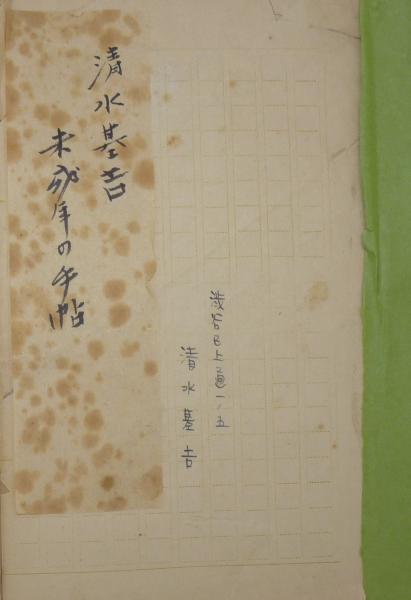 渋谷区上通一ノ五
清水基吉
清水基吉
未成年の手帖